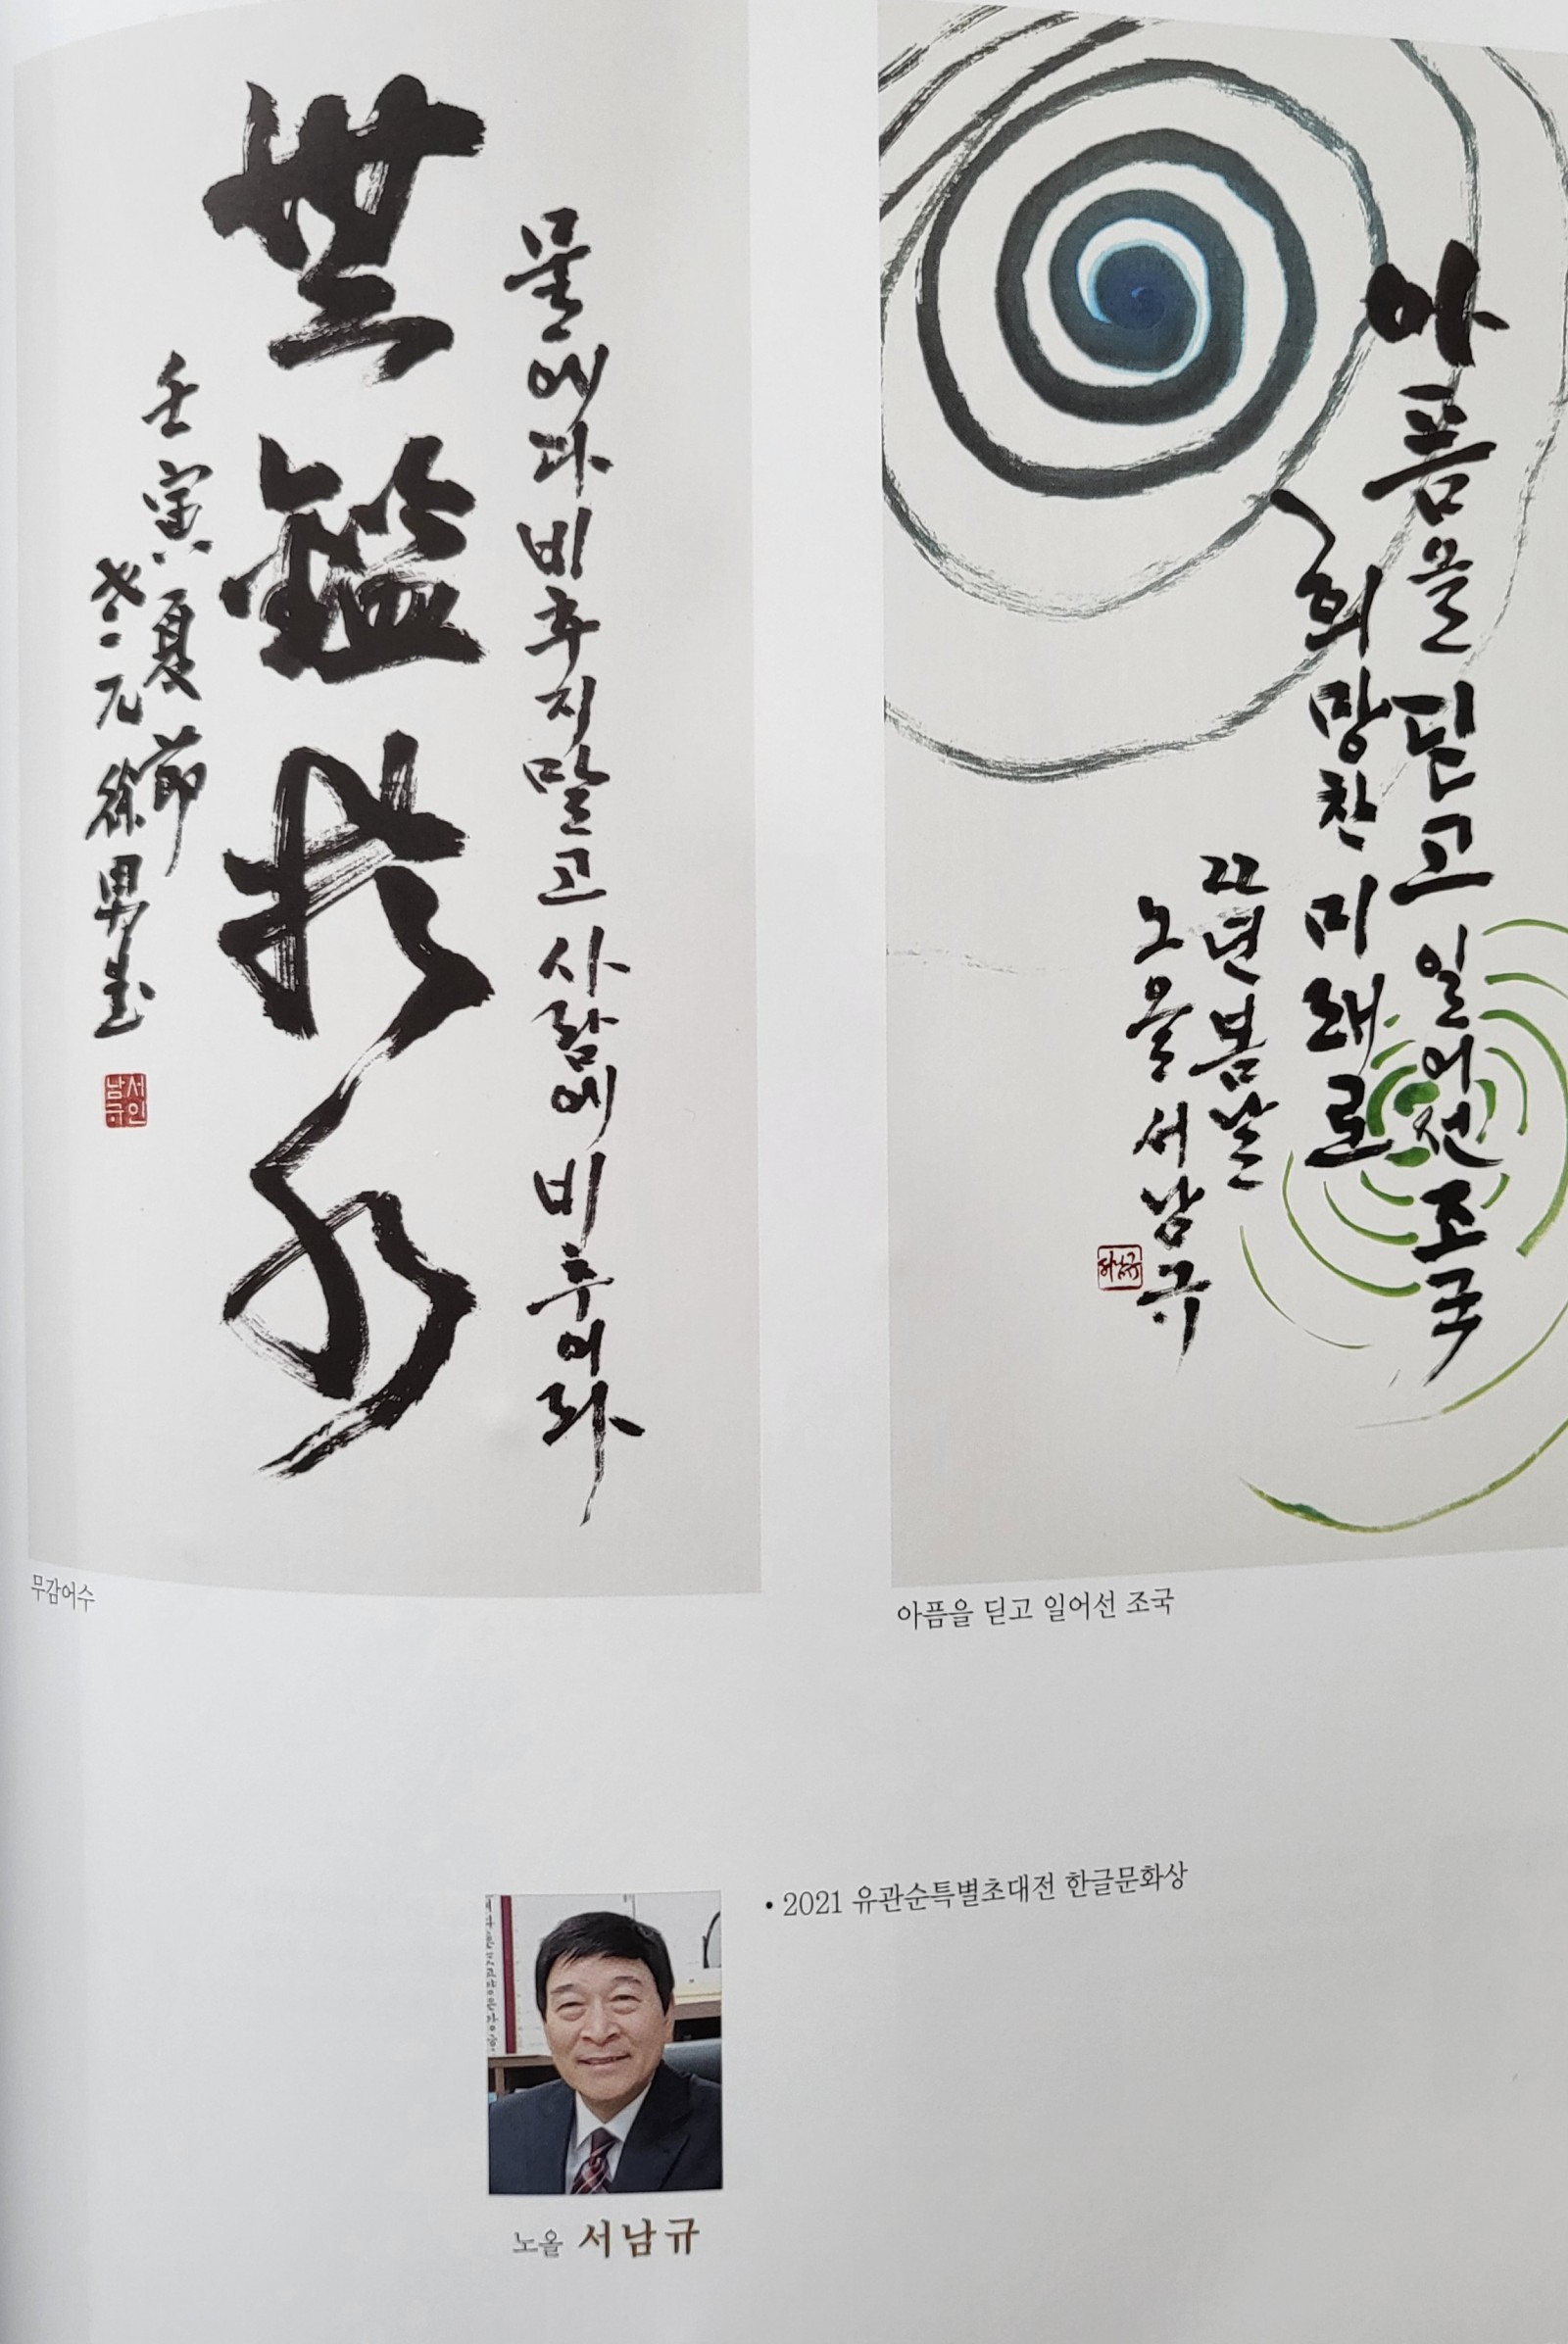 물에다 비추지 말고 사람에 비추어라
無鑑於水
壬寅夏節
元 徐男
서인
남규
무감어수
아픔을 딛고 일어선 조국
희망찬 미래로
22년 봄날
노을 서남규
서남규
아픔을 딛고 일어선 조국
• 2021 유관순특별초대전 한글문화상
노올 서남규